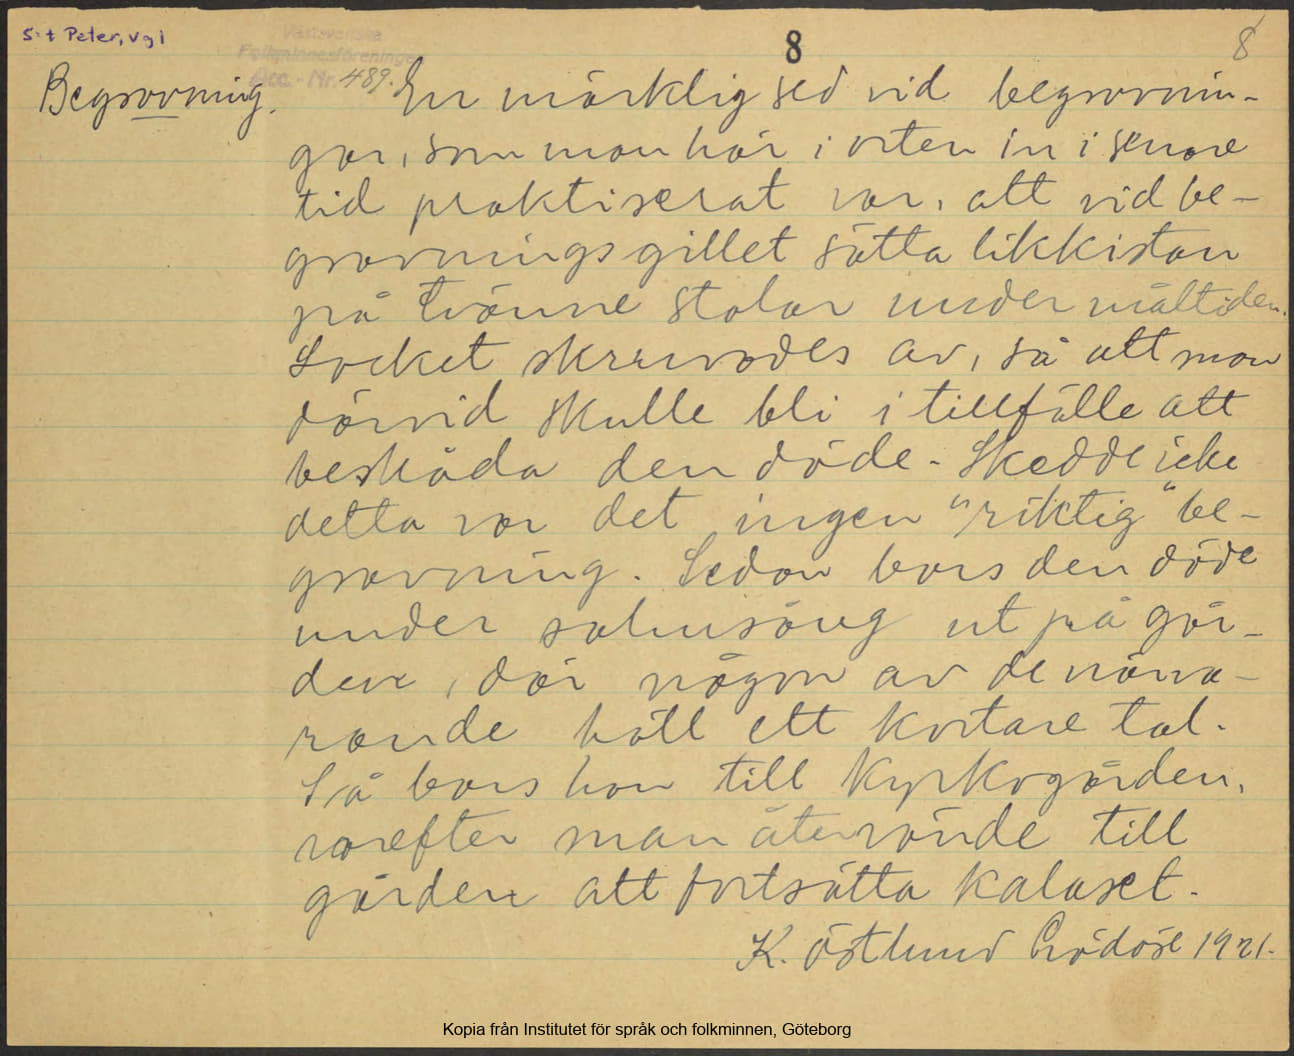 S:t Peter, Vgl
Västsvenska
Folkminnesföreningen
8
8
Acc.-Nr. 489.
Begravning.
En märklig sed vid begravnin-
gar, som man här i orten in i senare
tid praktiserat var, att vid be-
gravningsgillet sätta likkistan
på tvänne stolar under måltiden.
Locket skruvades av, så att man
därvid skulle bli i tillfälle att
beskåda den döde. Skedde icke
detta var det ingen "riktig" be-
gravning. Sedan bars den döde
under salmsång ut på går-
den, där någon av de närva-
rande höll ett kortare tal.
Så bars han till kyrkogården,
varefter man återvände till
gården att fortsätta kalaset.
K. Östlund Lödöse 1921.
Kopia från Institutet för språk och folkminnen, Göteborg